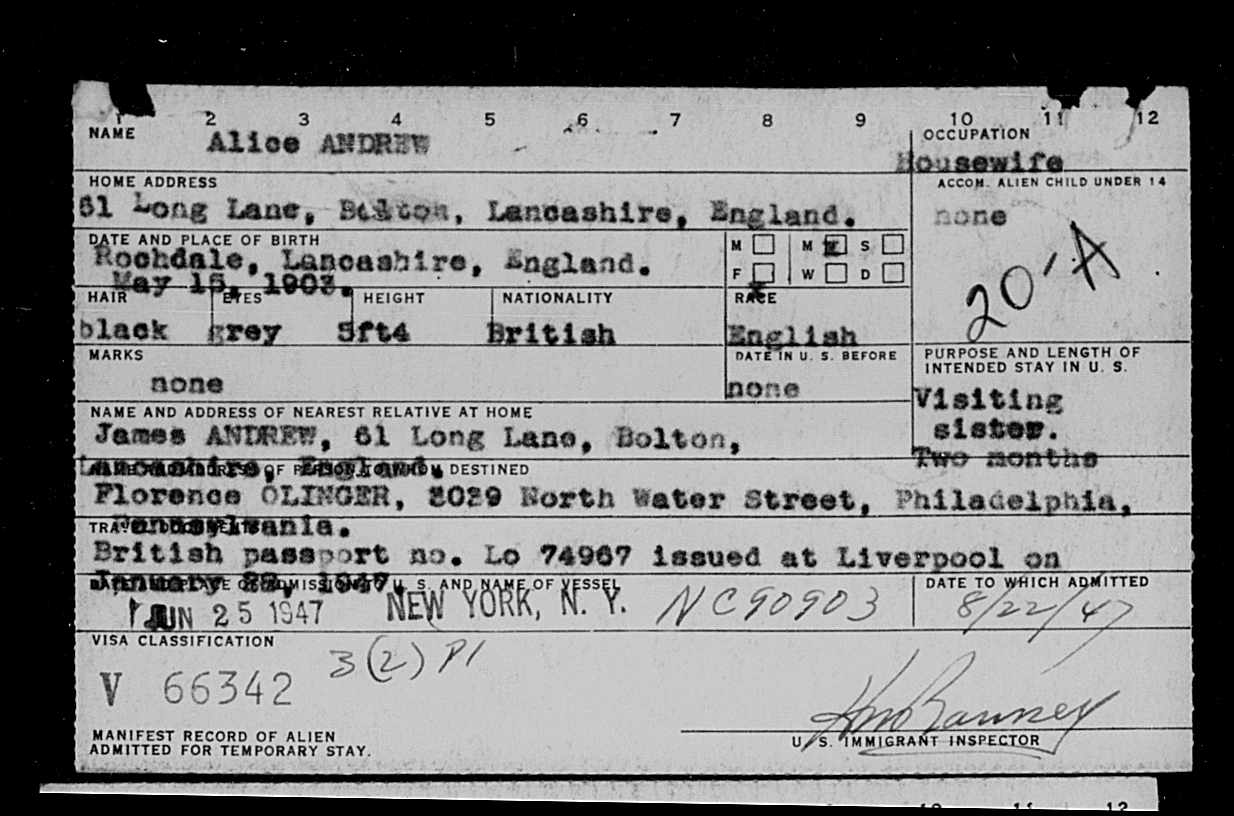 1 2 3 4 5 6 7 8 9 10 11 12
NAME Alice ANDREW
OCCUPATION
Housewife
HOME ADDRESS
61 Long Lane, Bolton, Lancashire, England.
ACCOM. ALIEN CHILD UNDER 14
none
20'A
DATE AND PLACE OF BIRTH
Rochdale, Lancashire, England.
May 15, 1903.
M M S
F W D
HAIR EYES HEIGHT NATIONALITY RACE
black grey 5ft4 British English
MARKS
none
DATE IN U. S. BEFORE
none
PURPOSE AND LENGTH OF
INTENDED STAY IN U. S.
Visiting
sister.
Two months
NAME AND ADDRESS OF NEAREST RELATIVE AT HOME
James ANDREW, 61 Long Lane, Bolton,
Lancashire, England.
OF DESTINED
Florence OLINGER, 3029 North Water Street, Philadelphia,
Pennsylvania.
British passport no. Lo 74967 issued at Liverpool on
January 1947.
OF ADMISSION U. S. AND NAME OF VESSEL
JUN 25 1947 NEW YORK, N. Y. NC90903
DATE TO WHICH ADMITTED
8/22/47
VISA CLASSIFICATION
3(2) P1
V 66342
MANIFEST RECORD OF ALIEN
ADMITTED FOR TEMPORARY STAY.
U. S. IMMIGRANT INSPECTOR
10 11 12